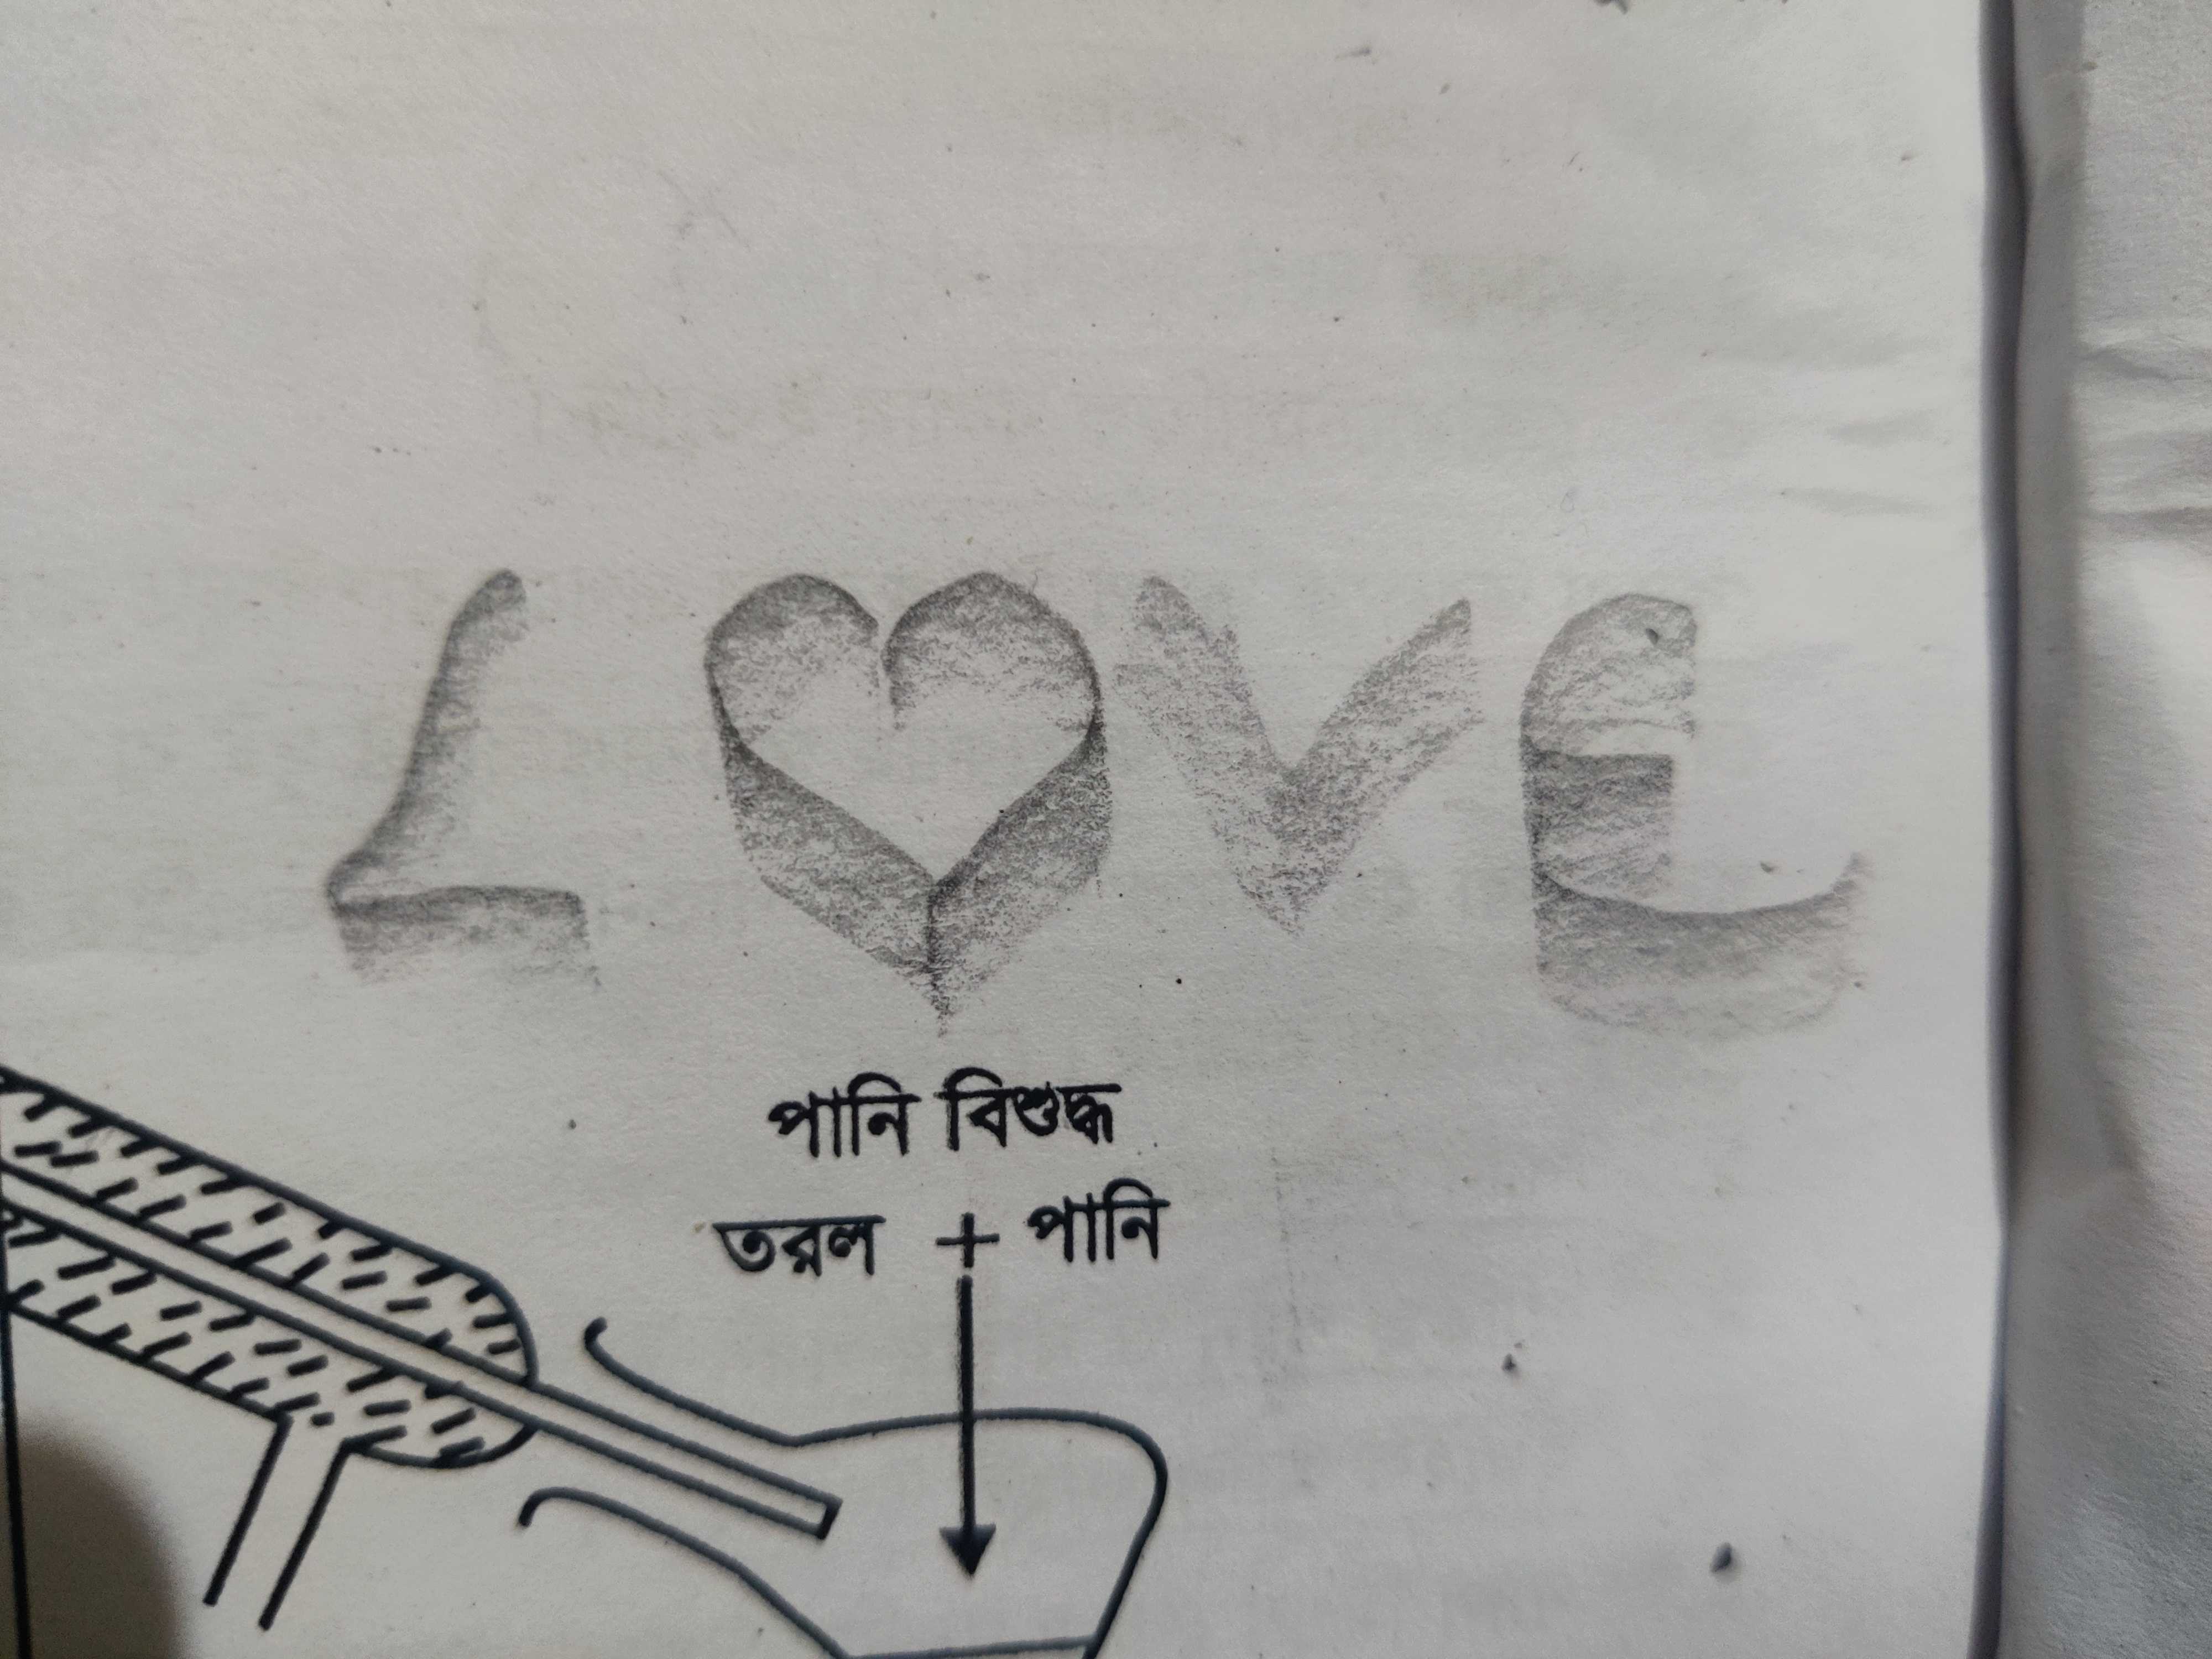 LOVE
পানি বিশুদ্ধ
তরল + পানি